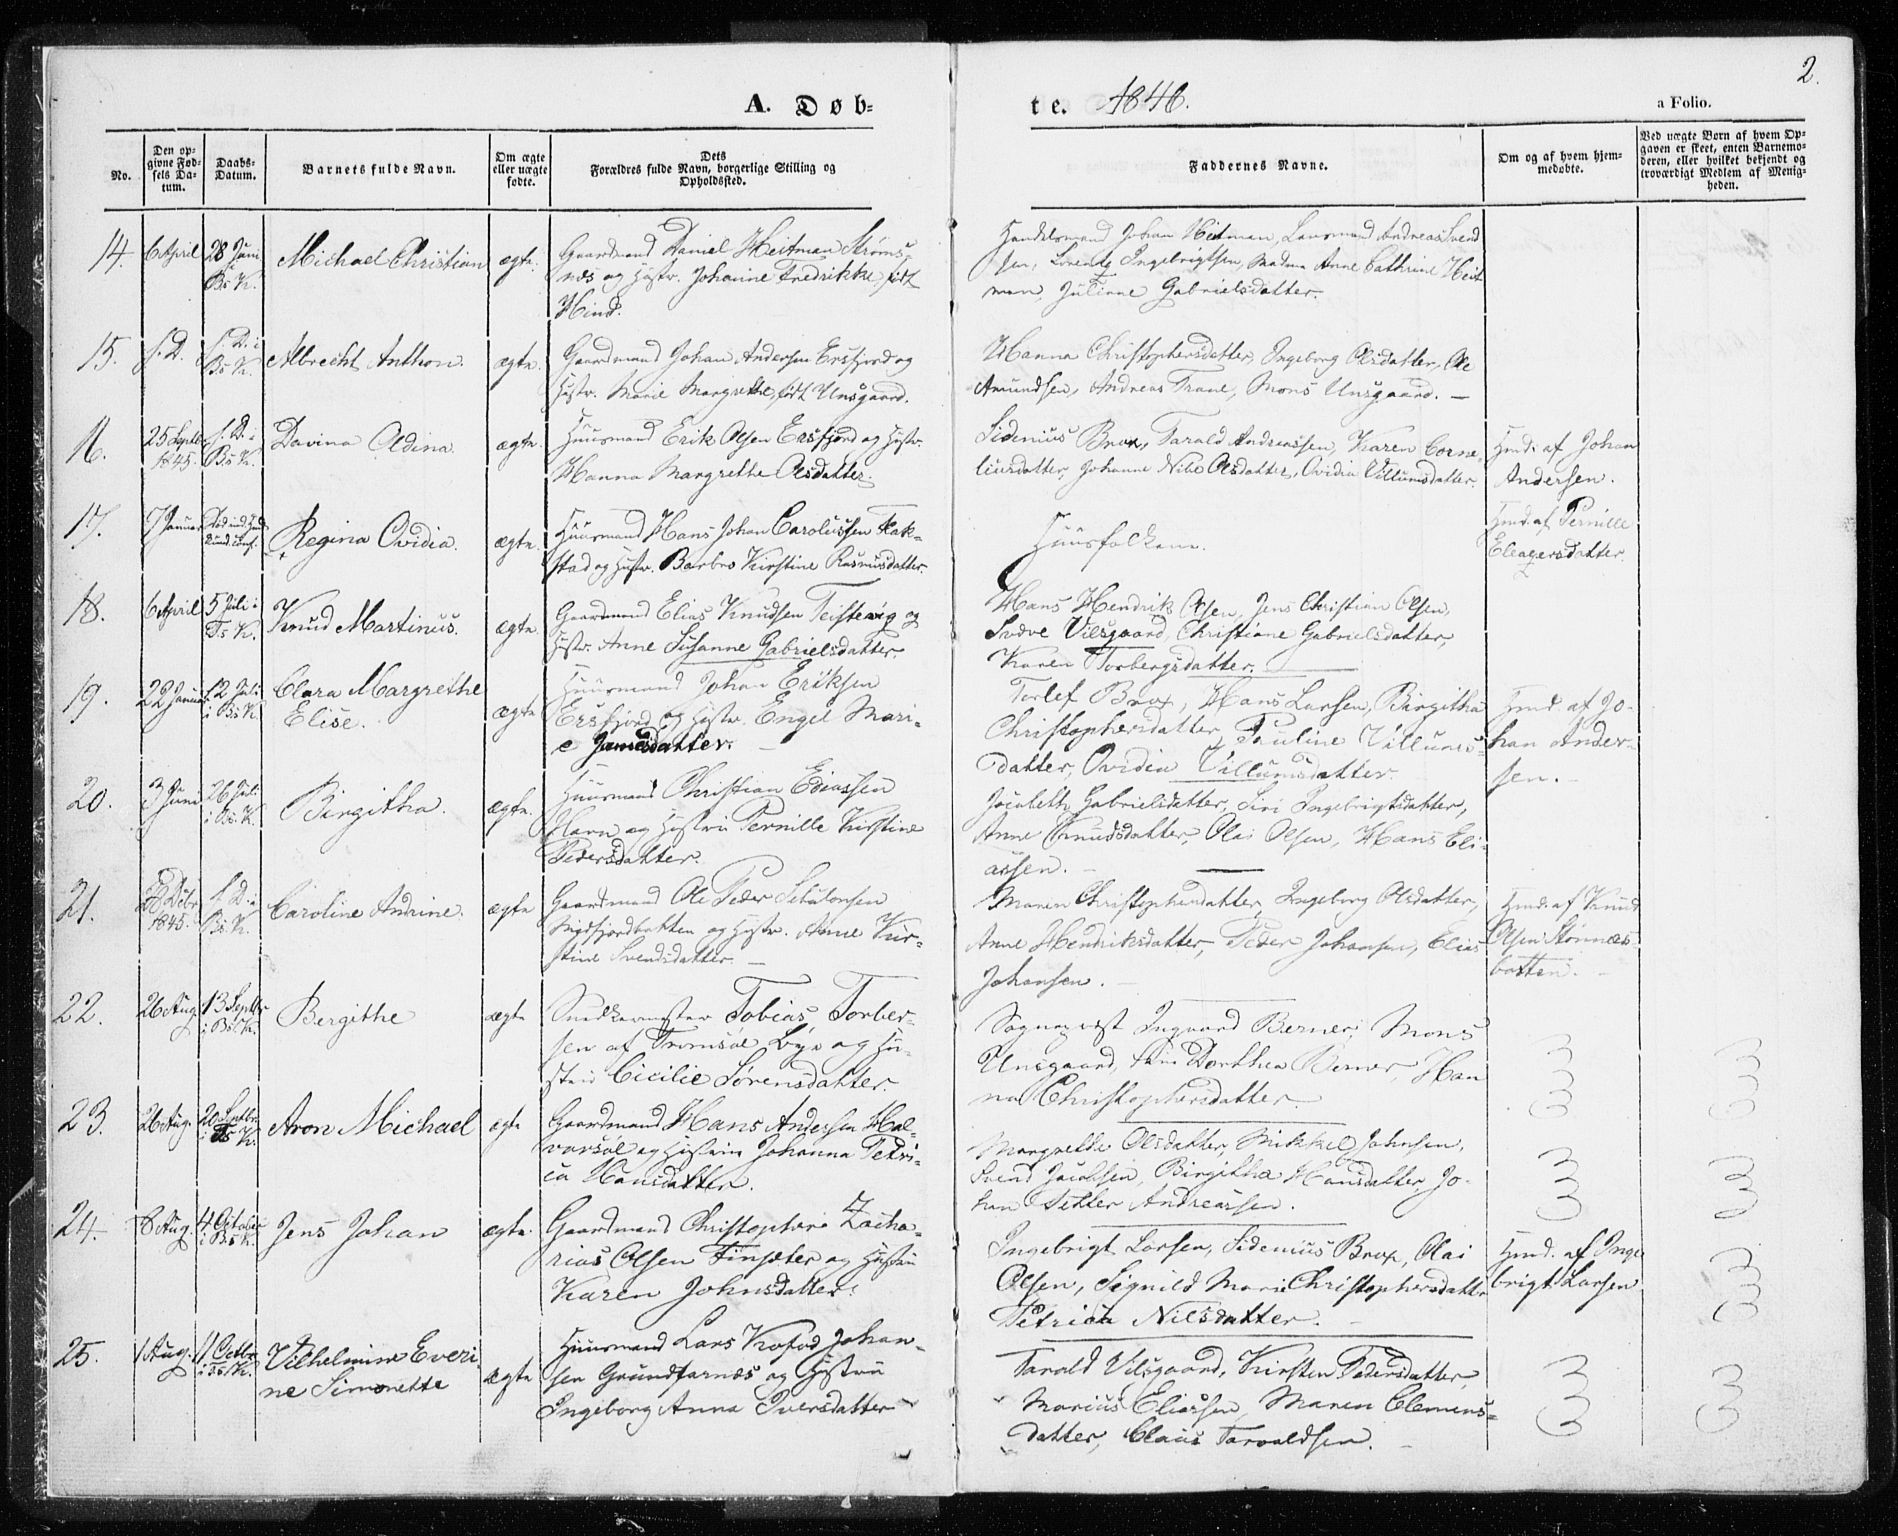 2.
A. Døb-
te. 1846.
a Folio.
No.
Den op-
givne Fød-
sels Da-
tum.
Daabs-
Datum.
Barnets fulde Navn.
Om ægte
eller uægte
fødte.
Dets
Forældres fulde Navn, borgerlige Stilling og
Opholdssted.
Faddernes Navne.
Om og af hvem hjem-
medøbte.
Ved uægte Børn af hvem Op-
gaven er skeet, enten Barnemo-
deren, eller hvilket bekjendt og
troværdigt Medlem af Menig-
heden.
14. 6 April 28 Juni i Bs K. Michael Christian ægte.
Gaardmand Daniel Heitman Strøms-
næs og Hustr. Johanne Fredrikke, født
Hind.
Handelsmand Johan Heitman, Lensmand Andreas Svend
sen, Lorentz Ingebrigtsen, Madme Anne Cathrine Heit
man, Juliane Gabrielsdatter.
15. s. D. s. D. i Bs K. Albrecht Anthon. ægte.
Gaardmand Johan Andersen Ersfjord og
Hustr. Marie Margrethe, født Unsgaard.
Hanna Christophersdatter, Ingeborg Olsdatter, Ole
Amundsen, Andreas Trane, Mons Unsgaard. —
16. 25 Septbr 1845. s. D. i Bs K. Davina Oldina ægte.
Huusmand Erik Olsen Ersfjord og Hustr.
Hanna Margrethe Olsdatter.
Sidenius Brox, Tarald Andreassen, Karen Corne-
liusdatter, Johanne Nilie Olsdatter, Ovidia Villumsdatter.
Hmd: af Johan
Andersen.
17. 7 Januar Død Regina Ovidia. ægte.
Huusmand Hans Johan Carolussen Flak-
stad og Hustr. Barbro Kirstine Rasmusdatter.
Huusfolkene.
Hmd. af Pernille
Eleasersdatter
18. 6 April 5 Juli i Ts K. Knud Martinus. ægte
Gaardmand Elias Knudsen Teistevig og
Hustr. Anne Susanne Gabrielsdatter.
Hans Hendrik Olsen, Jens Christian Olsen,
Svære Vilsgaard, Christiane Gabrielsdatter,
Karen Torbergsdatter.
19. 22 Januar 12 Juli i Bs K. Clara Margrethe
Elise. ægte
Huusmand Johan Eriksen
Ersfjord og Hustr. Engel Mari-
e Jamesdatter. —
Torlef Brox, Hans Larsen, Birgitha
Christophersdatter, Pauline Villums-
datter, Ovidia Villumsdatter.
Hmd af Jo-
han Ander-
sen. -
20. 3 Juni 26 Juli i Bs. K. Birgitha. ægte.
Huusmand Christian Ediassen
Havn og Hustru Pernille Kirstine
Pedersdatter.
Jacobeth Gabrielsdatter, Siri Ingebrigtsdatter,
Anne Knudsdatter, Olai Olsen, Hans Eli-
assen. -
21. Dcbr 1845. s. D. i Bs. K. Caroline Andrine. ægte
Gaardmand Ole Peder
og Hustr. Anne Kir-
stine Svendsdatter —
Maren Christophersdatter, Ingeborg Olsdatter,
Anne Hendriksdatter, Peder Johansen, Elias
Johansen. -
Hmd. af Knud
Olsen Stønnes-
botten. -
22. 26 Aug 13 Septbr i Bs. K. Bergithe ægte
Snedkermester Tobias Torber-
sen af Tromsøe Bye og Hu-
stru Cicilie Sørensdatter.
Sognepræst Ingvard Berner, Mons
Unsgaard, Dorthea Berner, Han
na Christophersdatter.
23. 26 Aug. 20 Septbr i Ts K. Aron Michael ægte
Gaardmand Hans Andersen Hal-
varsøe og Hustrue Johanna Petri-
ca Hansdatter.
Margrethe Olsdatter, Mikkel Johnsen,
Svend Jacobsen, Birgitha Hansdatter, Jo-
han Petter Andreassen.
24. 8 Aug. 4 October i Bs K. Jens Johan ægte.
Gaardmand Christopher Zacha-
rias Olsen Finsæter og Hustru
Karen Johnsdatter.
Ingebrigt Larsen, Sidenius Brox, Olai
Olsen, Signild Marie Christophersdatter
Petrica Nilsdatter. -
Hmd. af Inge
brigt Larsen
25. 1 Aug. 11 Octbr i Ts K. Vilhelmine Everi-
ne Simonette ægte
Huusmand Lars Kofod Johan-
sen Grundfarnæs og Hustru
Ingeborg Anna Iversdatter
Tarald Vilsgaard, Kirsten Pedersdatter,
Marius Eliassen, Maren Clemens-
datter, Claus Taraldsen. -